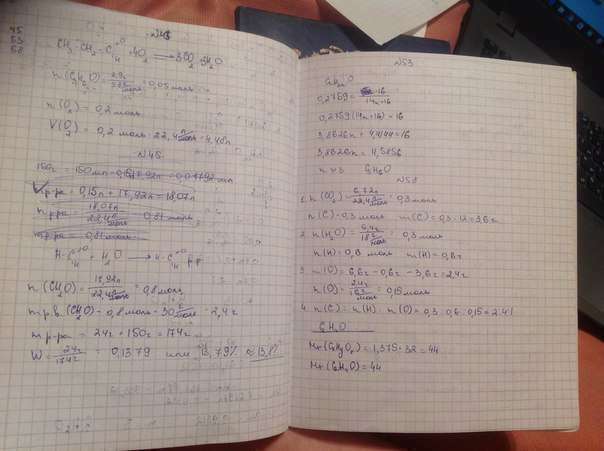 45
53
58
CH3-CH2-C +4O2 → 3CO2 3H2O
n(C3H6O)= = 0,05 моль
n(O2) = 0,2 моль
V(O2) = 0,2 моль · 22,4 л/моль = 4,48 л
N46
Vр-ра = 0,15л + 17,92л = 18,07л
18,07л
mр-ра = 0,81 моль
H-C + H2O → H-C р-р
n(CH2O) = 17,92л / 22,4 л/моль = 0,8 моль
mр.в.(CH2O) = 0,8 моль · 30 г/моль = 24г
mр-ра = 24г + 150г = 174г
W = 24г / 174г = 0,1379 или 13,79% ≈ 13,8%
N53
CnH2nO
0,2759 = 16 / 14n+16
0,2759(14n+16) = 16
3,8626n + 4,4144 = 16
3,8626n = 11,5856
n = 3 C3H6O
N58
1. n(CO2) = 6,72л / 22,4 л/моль = 0,3 моль
n(C) = 0,3 моль m(C) = 0,3 · 12 = 3,6г
2. n(H2O) = 5,4г / 18 г/моль = 0,3 моль
n(H) = 0,6 моль m(H) = 0,6г
3. m(O) = 6,6г - 0,6г - 3,6г = 2,4г
n(O) = 2,4г / 16 г/моль = 0,15 моль
4. n(C) : n(H) : n(O) = 0,3 : 0,6 : 0,15 = 2:4:1
C2H4O
Mr(CxHyOz) = 1,375 · 32 = 44
Mr(C2H4O) = 44